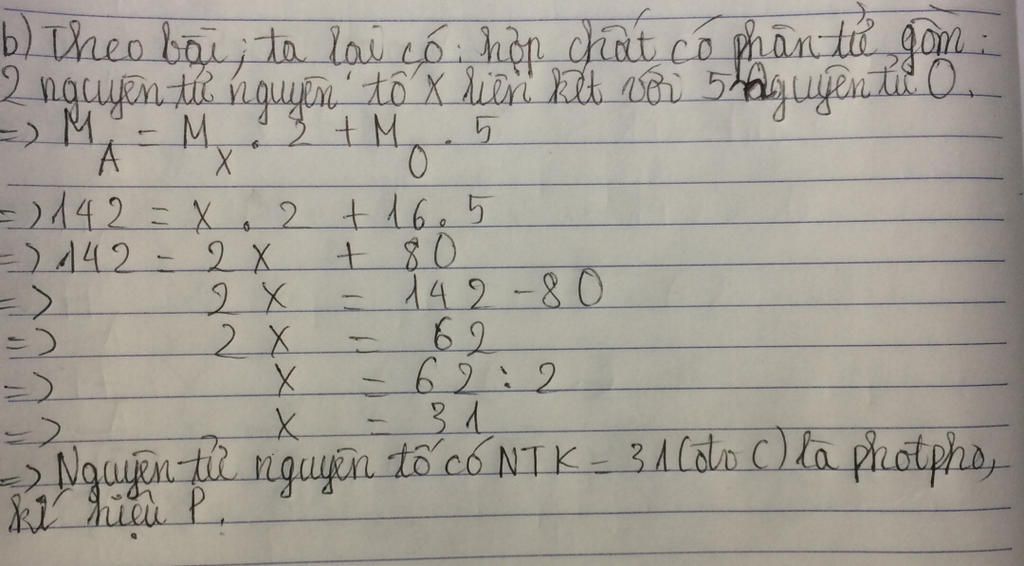 b) Theo bài, ta lại có: hợp chất có phân tử gồm:
2 nguyên tử nguyên tố X liên kết với 5 nguyên tử O.
=> M_A = M_X . 2 + M_O . 5
=> 142 = X . 2 + 16 . 5
=> 142 = 2X + 80
=> 2X = 142 - 80
=> 2X = 62
=> X = 62 : 2
=> X = 31
=> Nguyên tử nguyên tố có NTK = 31 (đvC) là photpho,
kí hiệu P.